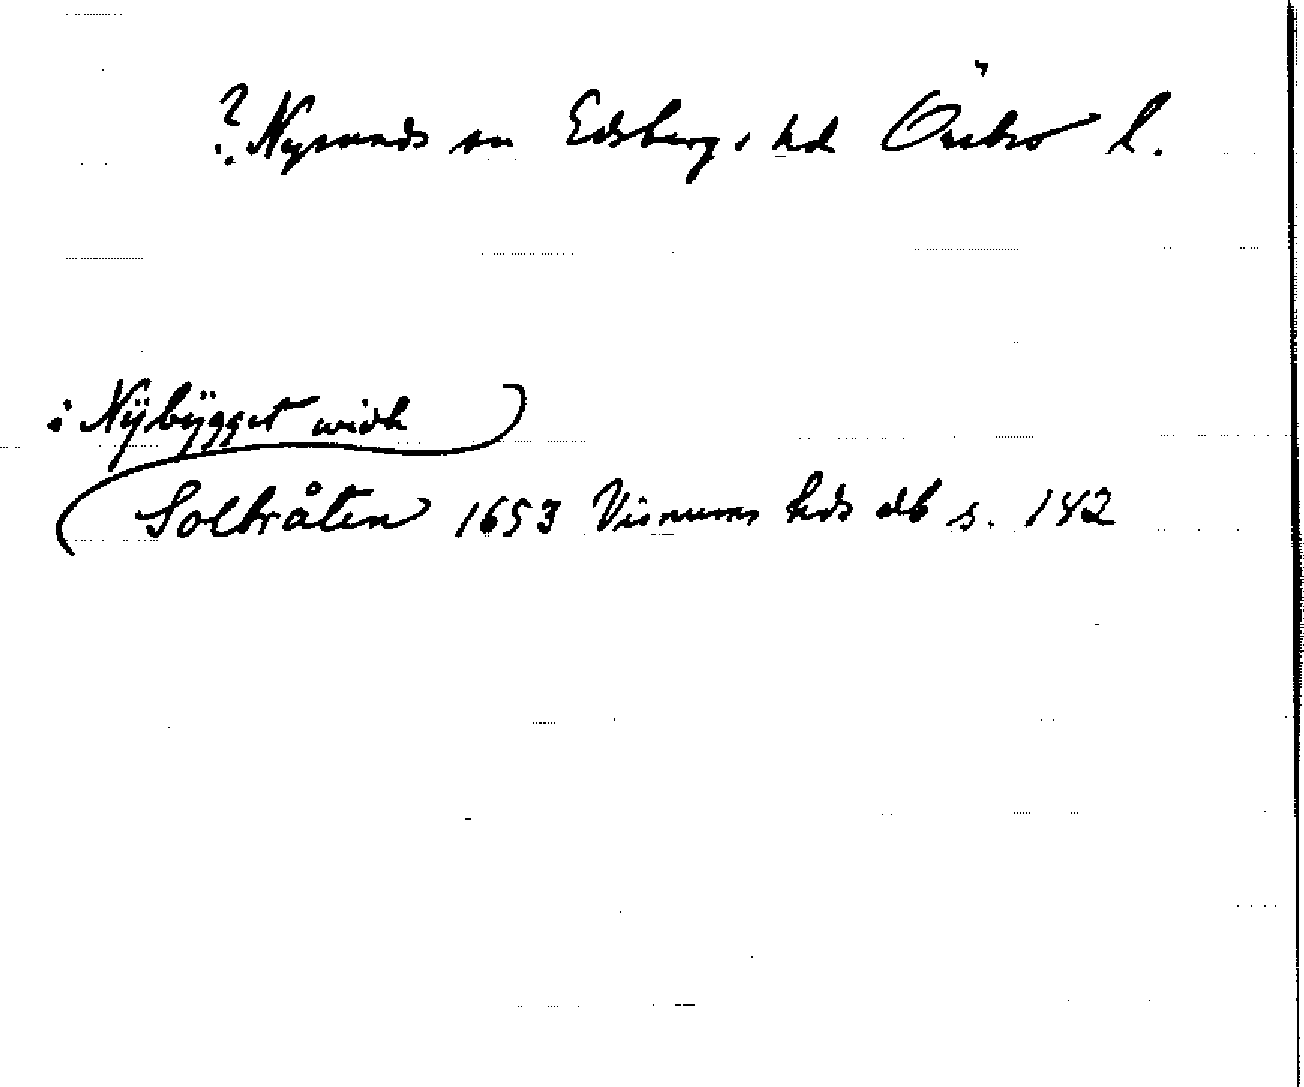 ? Nysunds sn Edsbergs hd Örebro l.
i Nÿbÿgget widh
Solbråten 1653 Visnums hds db s. 142